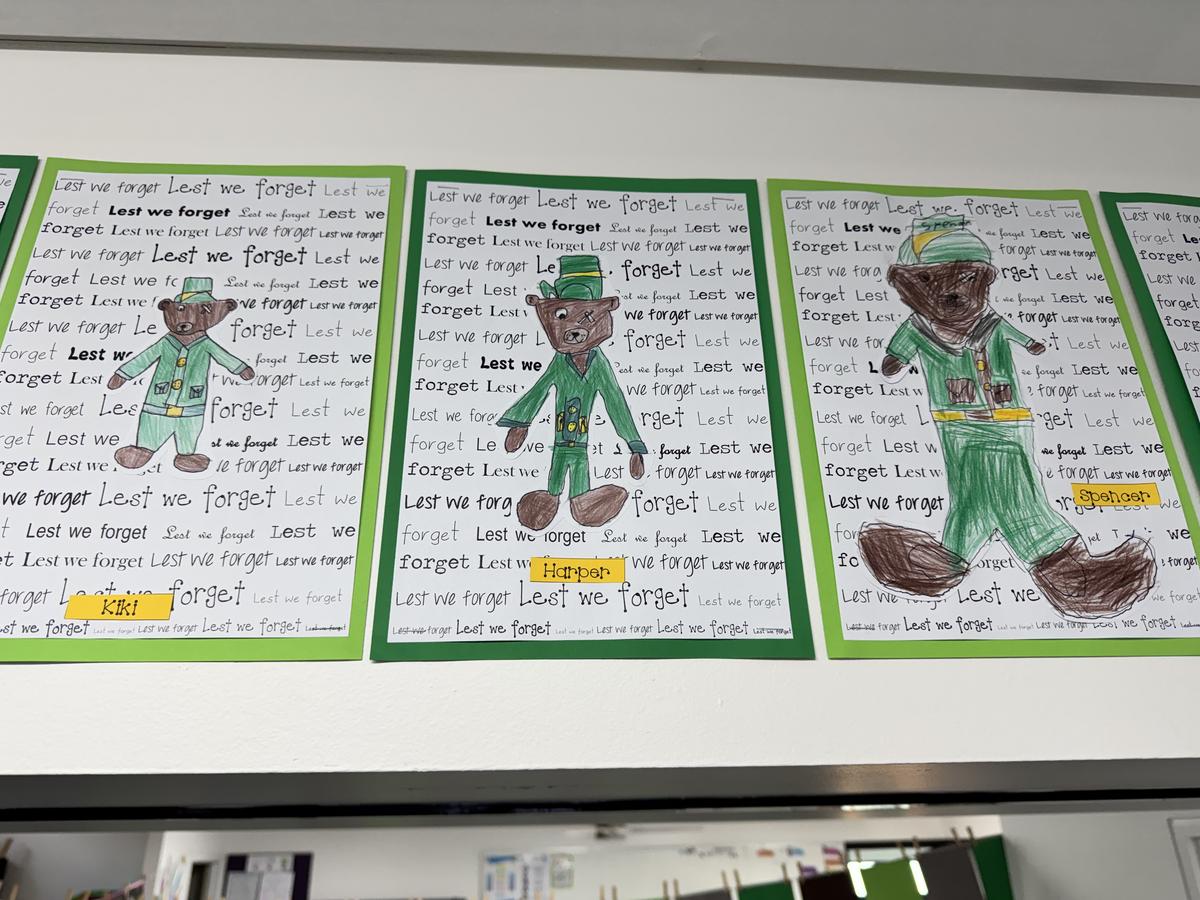 Lest we forget Lest we forget Lest we
forget Lest we forget Lest we forget Lest we
forget Lest we forget Lest we forget Lest we forget
Lest we forget Lest we forget Lest we
forget Lest we Lest we forget Lest we
forget Lest we we forget Lest we forget
Lest we forget forget Lest we
forget Lest forget Lest we
forget Lest forget Lest we forget
we forget Les forget Lest we
Lest we we forget Lest we
Lest we we forget Lest we forget
we forget Lest we forget Lest we
Lest we forget Lest we forget Lest we
Lest we forget Lest we forget Lest we forget
forget forget Lest we forget
Kiki
we forget Lest we forget Lest we forget Lest we forget Lest we forget
Lest we forget Lest we forget Lest we
forget Lest we forget Lest we forget Lest we
forget Lest we forget Lest we forget Lest we forget
Lest we forget Le forget Lest we
forget Lest we forget Lest we
forget Lest we forget Lest we forget
Lest we forget forget Lest we
forget Lest we forget Lest we
forget Lest we forget Lest we forget
Lest we forget Lest we
forget Le forget Lest we
forget Lest we Lest we forget Lest we forget
Lest we forget Lest we
forget Lest we forget Lest we forget Lest we
forget Lest we we forget Lest we forget
Harper
Lest we forget Lest we forget Lest we forget
Lest we forget Lest we forget Lest we forget Lest we forget Lest we forget Lest we forget
Lest we forget Lest we forget Lest we
forget Lest we Spencer forget Lest we
forget Lest we forget Lest we forget
Lest we forget Lest we
forget Lest we forget Lest we
forget Lest we forget Lest we forget
Lest we Lest we
forget Lest we
forget Lest we forget Lest we forget
Lest we forget Lest we
forget Lest we forget Lest we
forget Lest we forget Lest we forget
Lest we forget
Spencer
Lest we
forget
Lest we forget Lest we we forget
Lest we forget Lest we forget Lest we forget Lest we forget Lest we forget
Lest we
forget
forget
Lest we